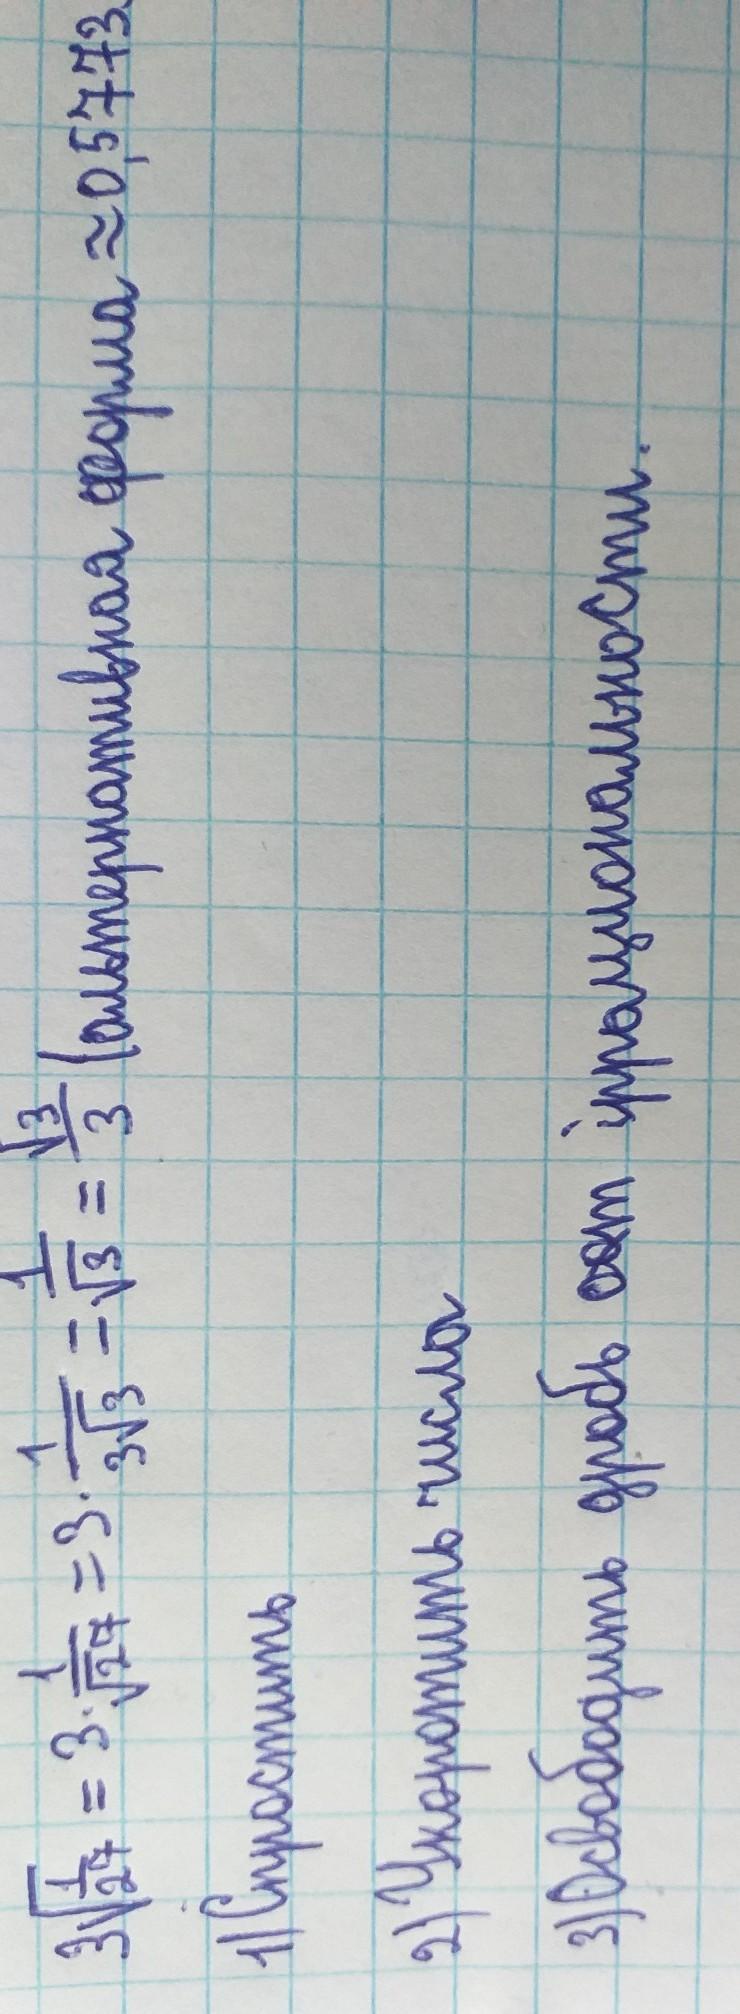 3√(1/27) = 3 · 1/√27 = 3 · 1/(3√3) = 1/√3 = √3/3 (альтернативная форма ≈ 0,5773
1) Спростить
2) Укоротить числа
3) Освободить дробь от іррациональности.